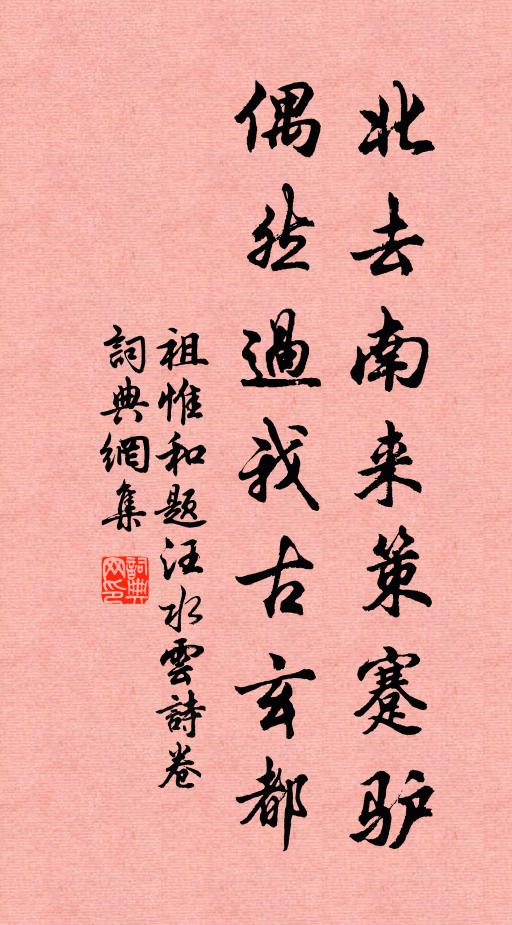 北去南来策蹇驴
偶然過我古玄都
祖惟和题汪水雲詩卷
詞典網集
詞典网印